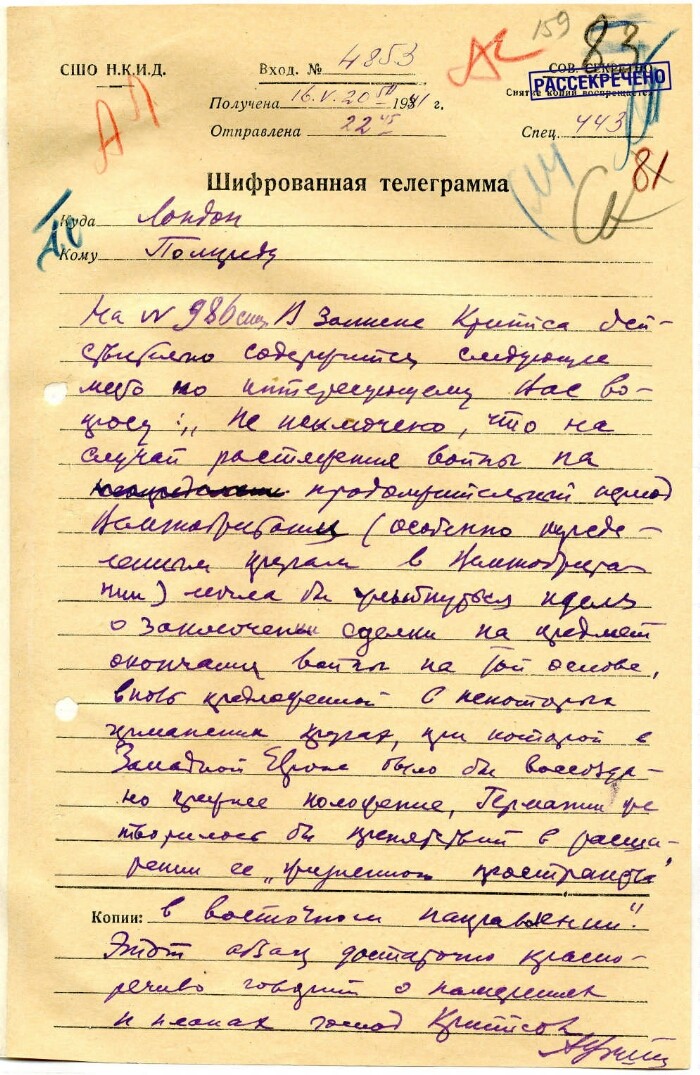 159
83
СШО Н.К.И.Д.
Вход. № 4853
СОВ. СЕКРЕТНО
РАССЕКРЕЧЕНО
Снятие копий воспрещается
Получена 16.V.20 50 1941 г.
Отправлена 22 45
Спец. 443
81
Шифрованная телеграмма
Куда Лондон
Кому Полпреду
На № 986 спец. В записке Криппса дей-
ствительно содержится следующее
место по интересующему Вас во-
просу: „Не исключено, что на
случай растяжения войны на
продолжительный период
Великобритании (особенно опреде-
ленным кругам в Великобрита-
нии) могла бы улыбнуться идея
о заключении сделки на предмет
окончания войны на той основе,
вновь предложенной в некоторых
германских кругах, при которой в
Западной Европе было бы воссозда-
но прежнее положение, Германии не
творилось бы препятствий в расши-
рении ее „жизненного пространства“
Копии: в восточном направлении“.
Этот абзац достаточно красно-
речиво говорит о намерениях
и планах господ Криппсов